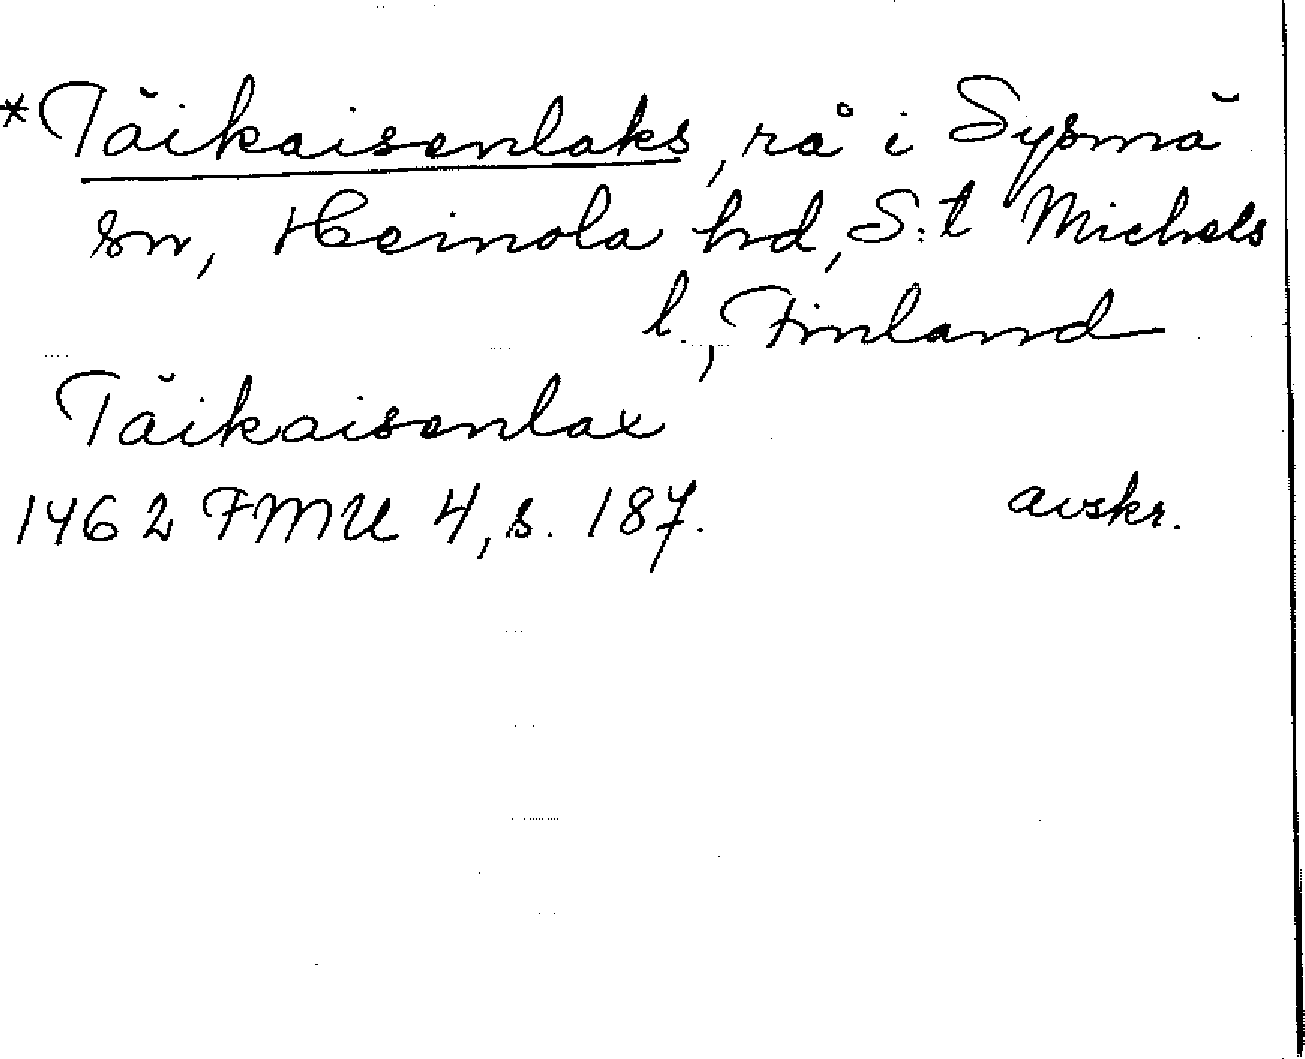 *Täikaisenlaks, rå i Sysmä
sn, Heinola hd, S:t Michels
l., Finland
Täikaisenlax
1462 FMU 4, s. 187. avskr.